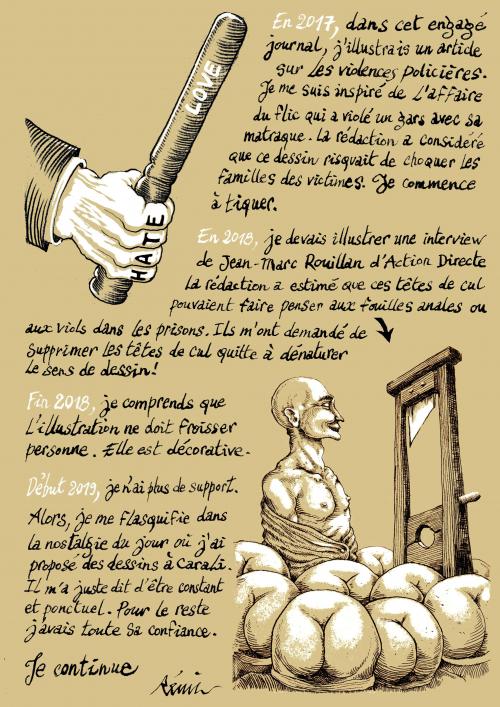 En 2017, dans cet engagé
journal, j'illustrais un article
sur les violences policières.
Je me suis inspiré de l'affaire
du flic qui a violé un gars avec sa
matraque. La rédaction a considéré
que ce dessin risquait de choquer les
familles des victimes. Je commence
à tiquer.
LOVE
HATE
En 2018, je devais illustrer une interview
de Jean-Marc Rouillan d'Action Directe
La rédaction a estimé que ces têtes de cul
pouvaient faire penser aux fouilles anales ou
aux viols dans les prisons. Ils m'ont demandé de
supprimer les têtes de cul quitte à dénaturer
le sens de dessin!
Fin 2018, je comprends que
l'illustration ne doit froisser
personne. Elle est décorative.
Début 2019, je n'ai plus de support.
Alors, je me flasquifie dans
la nostalgie du jour où j'ai
proposé des dessins à Carali.
Il m'a juste dit d'être constant
et ponctuel. Pour le reste
j'avais toute sa confiance.
Je continue